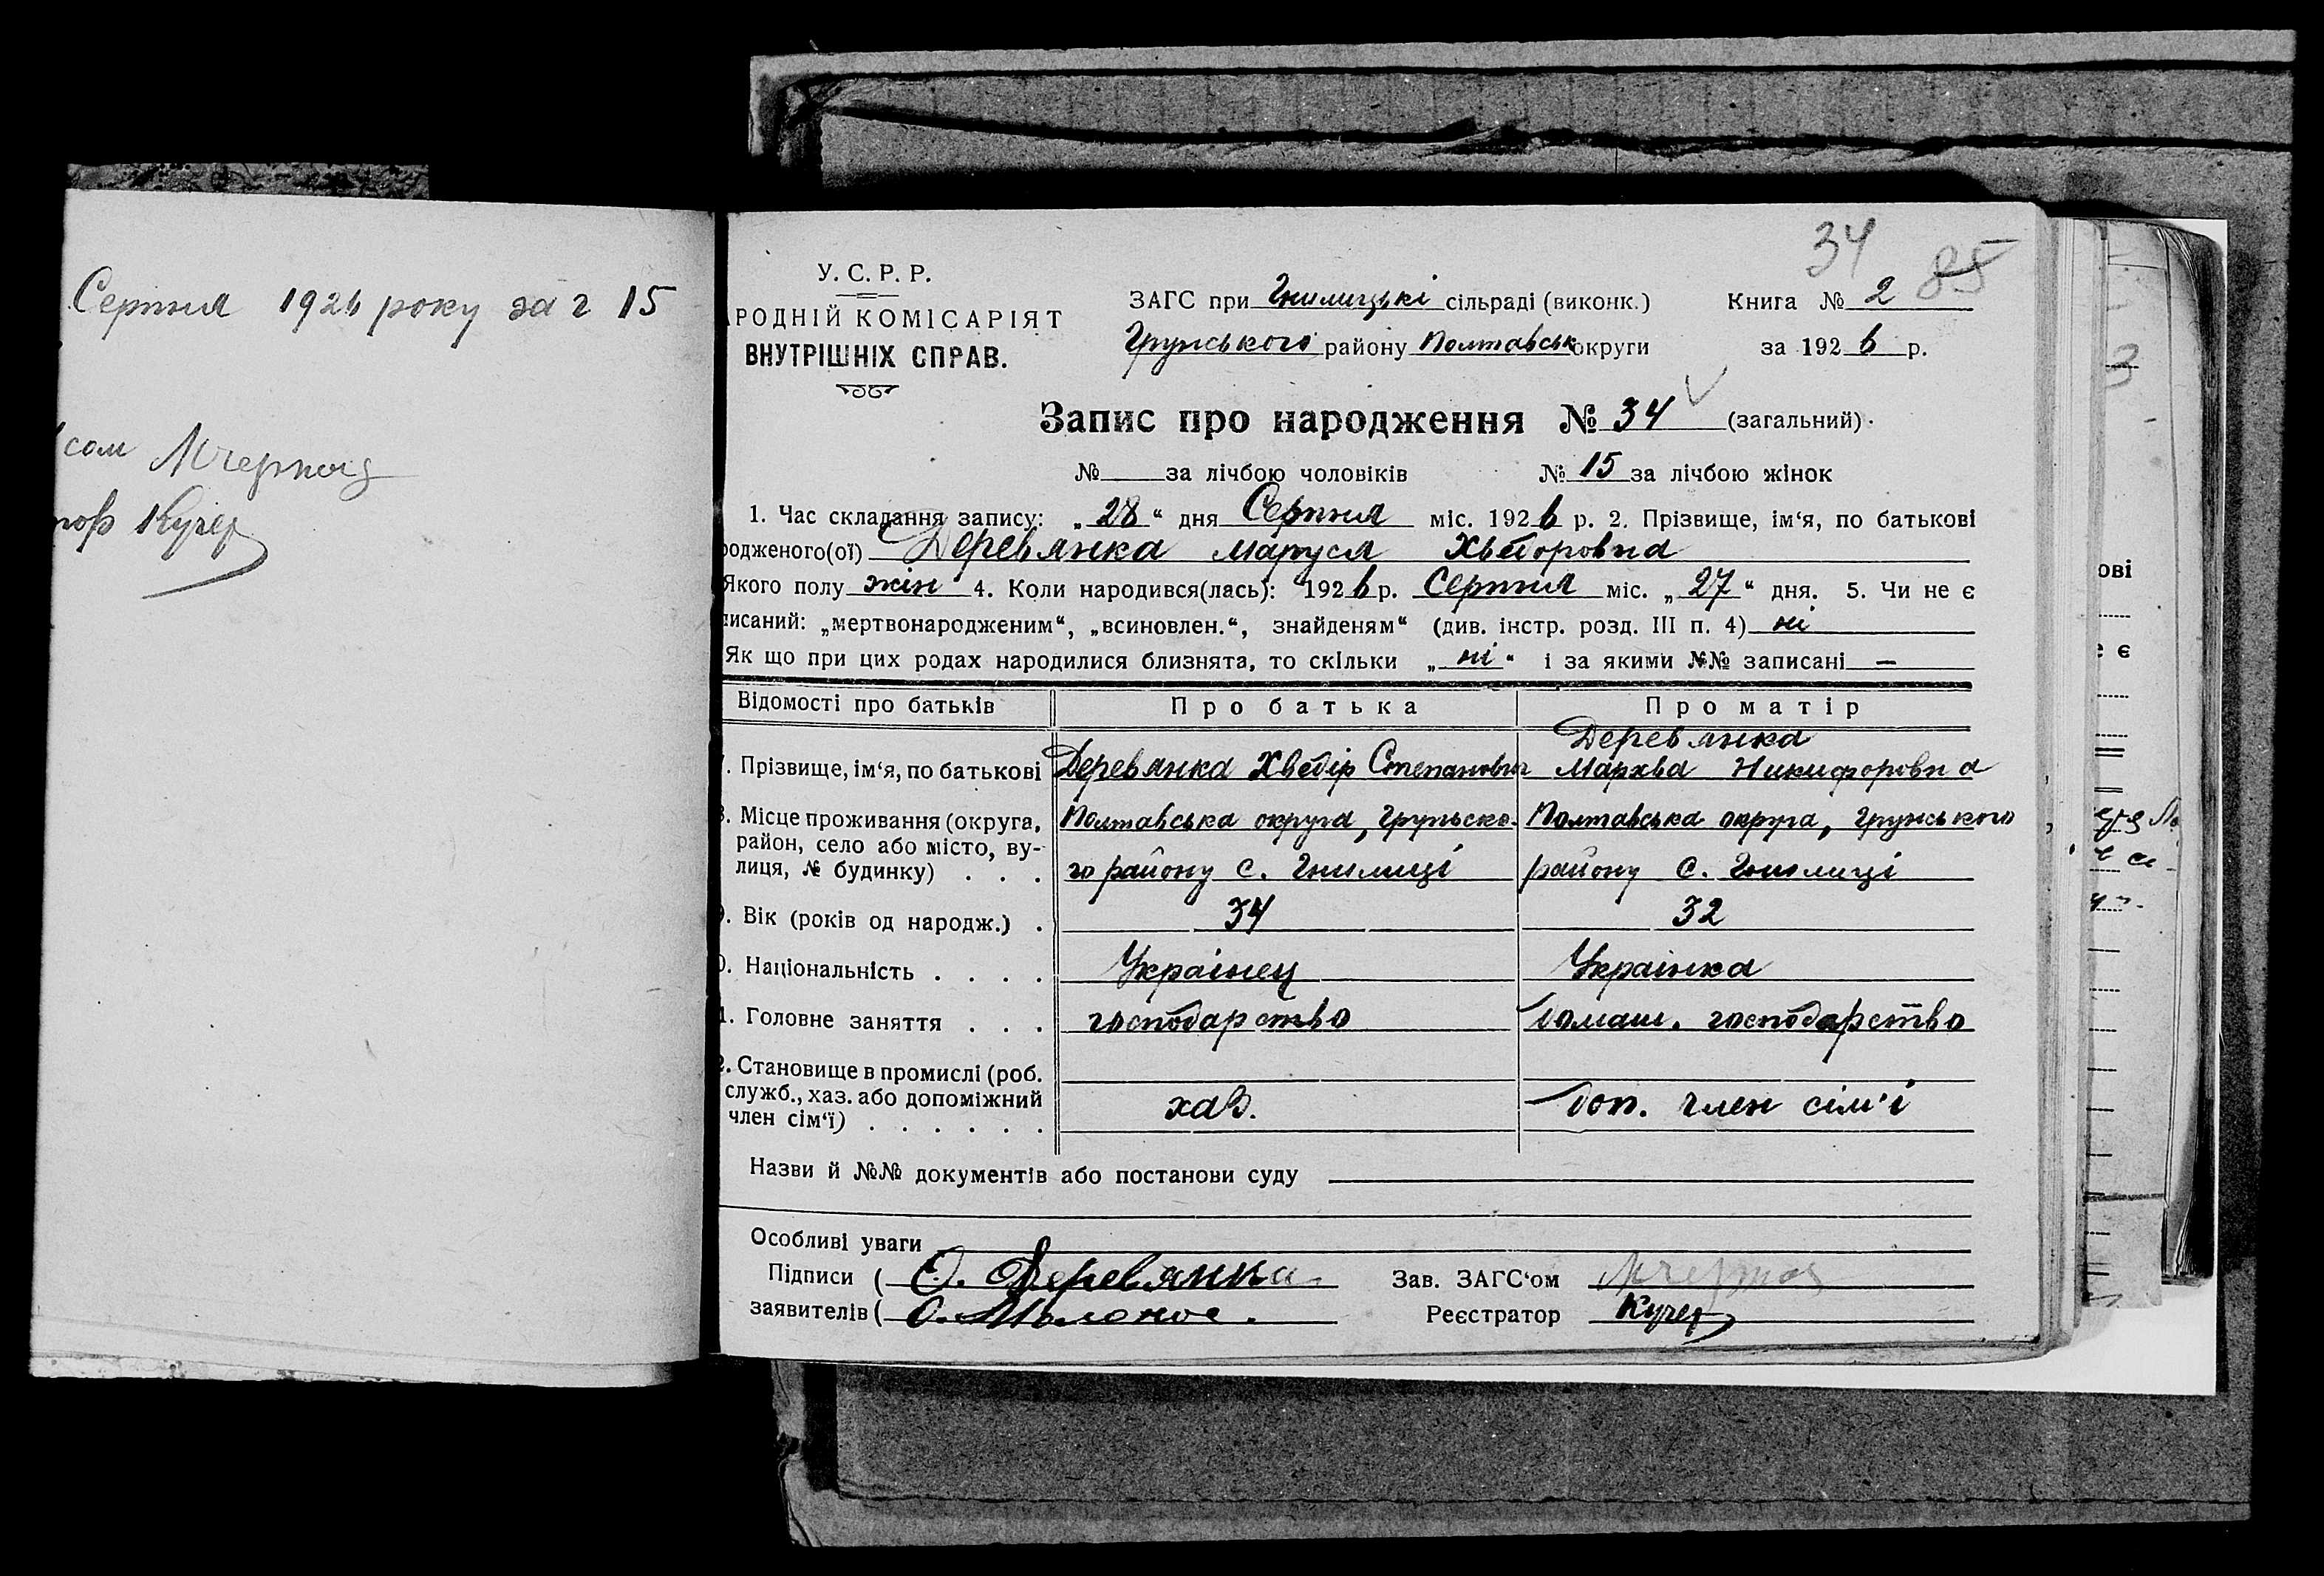 Серпня 1926 року за ч 15
сом
Кучер
34 85
У. С. Р. Р.
РОДНІЙ КОМІСАРІЯТ
ВНУТРІШНІХ СПРАВ.
ЗАГС при Гнилицькі сільраді (виконк.)
Грунського району Полтавськ округи
Книга № 2
за 1926 р.
Запис про народження № 34 (загальний)
№ за лічбою чоловіків № 15 за лічбою жінок
1. Час складання запису: „28“ дня Серпня міс. 1926 р. 2. Прізвище, ім‘я, по батькові
родженого(ої) Деревянка Маруся Хведоровна
Якого полу жін 4. Коли народився(лась): 1926 р. Серпня міс. „27“ дня. 5. Чи не є
писаний: „мертвонародженим“, „всиновлен.“, знайденям“ (див. інстр. розд. III п. 4) ні
Як що при цих родах народилися близнята, то скільки „ні“ і за якими №№ записані —
Відомості про батьків Про батька Про матір
7. Прізвище, ім‘я, по батькові Деревянка Хведір Степанович Деревянка Мархва Никифоровна
8. Місце проживання (округа, район, село або місто, вулиця, № будинку) . . . Полтавська округа, Грунсько-го району с. Гнилиці Полтавська округа, Грунського району с. Гнилиці
9. Вік (років од народж.) . 34 32
0. Національність . . . . Украінец Украінка
1. Головне заняття . . . господарство домаш. господарство
2. Становище в промислі (роб. служб., хаз. або допоміжний член сім‘ї) . . . . . . хаз. доп. член сім'і
Назви й №№ документів або постанови суду
Особливі уваги
Підписи ( Ф. Деревянка Зав. ЗАГС‘ом
заявителів ( Реєстратор Кучер
ові
є